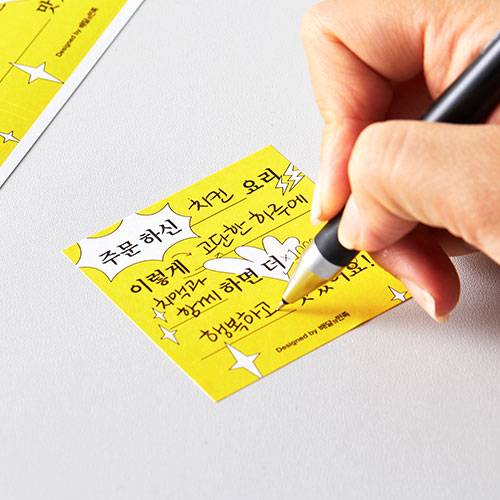 맛
Designed by 배달의민족
주문 하신 치킨 요리
이렇게 고단한 하루에
치맥과
함께 하면 더 x100
행복하고 맛있어요!
Designed by 배달의민족